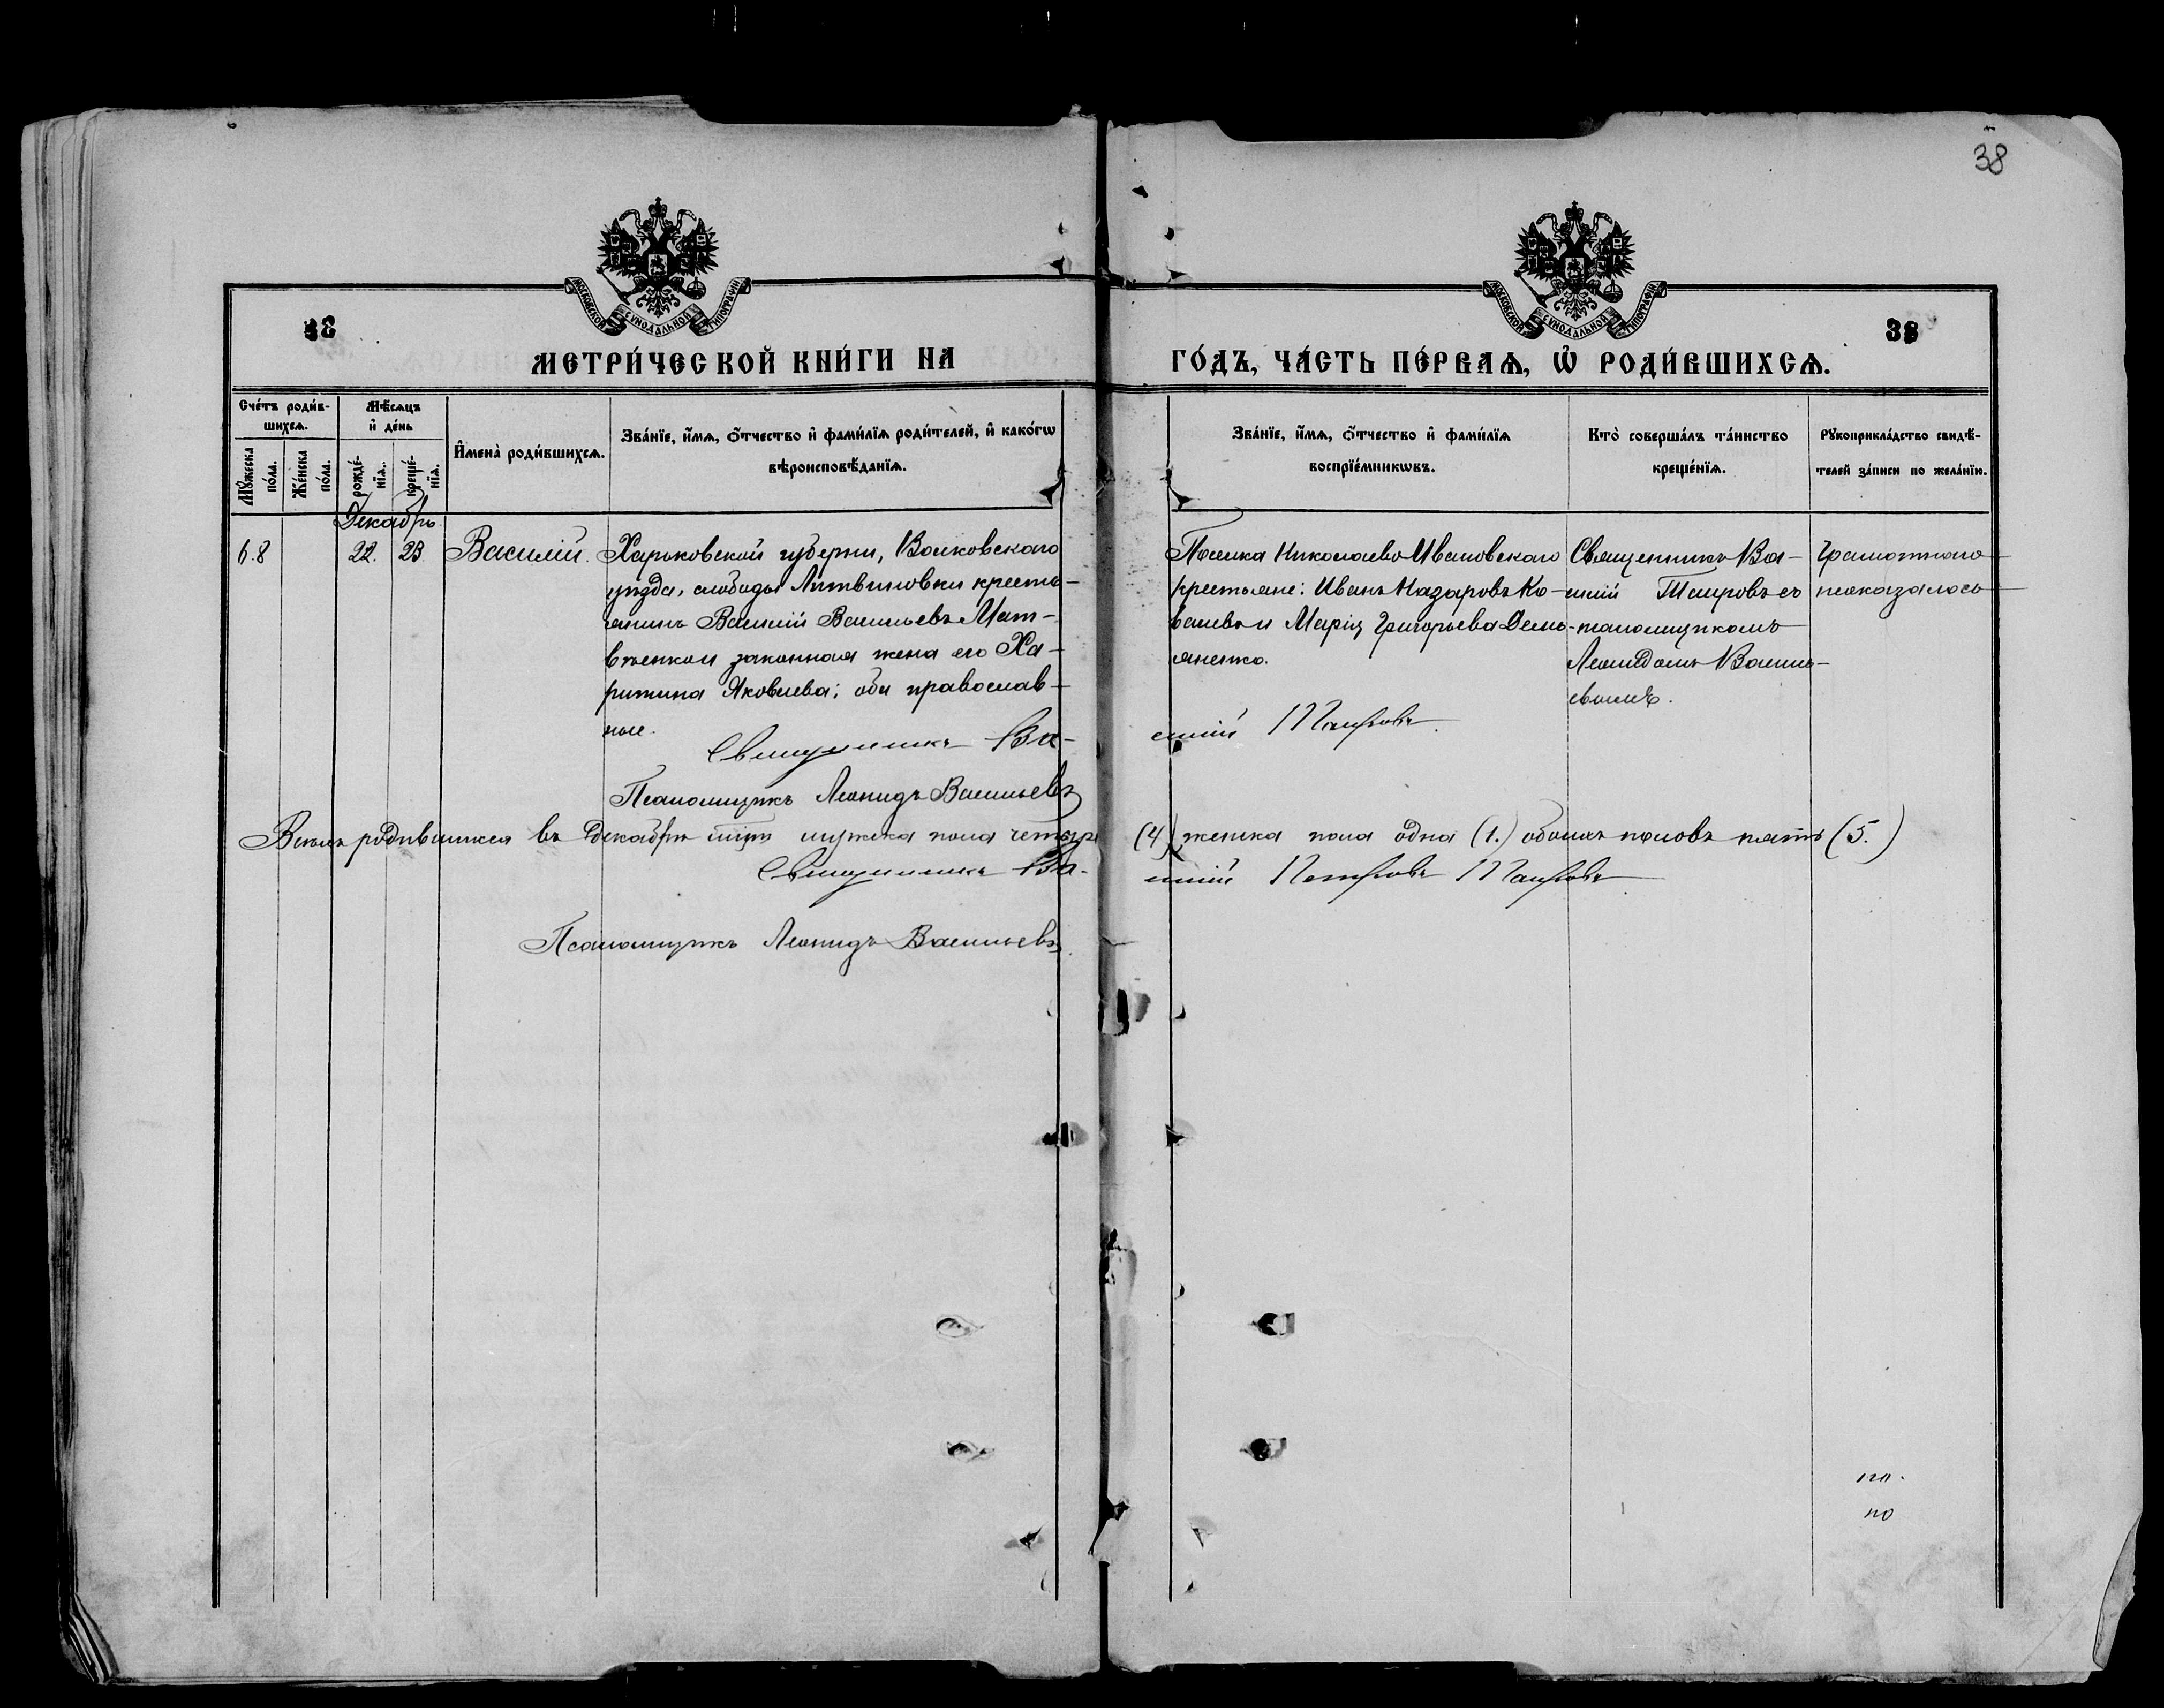 38
МОСКОВСКОЙ СУНОДАЛЬНОЙ ТИПОГРАФІИ
МОСКОВСКОЙ СУНОДАЛЬНОЙ ТИПОГРАФІИ
38
МЕТРИ́ЧЕСКОЙ КНИ́ГИ НА
ГО́ДЪ, ЧА́СТЬ ПЕ́РВАѦ, Ѡ РОДИ́ВШИХСѦ.
Сче́тъ роди́в-
шихсѧ.
Мѣ́сѧцъ
и҆ де́нь
Мꙋ́жеска
по́ла.
Же́нска
по́ла.
рожде́-
нїѧ.
креще́-
нїѧ.
И҆мена̀ роди́вшихсѧ.
Зва́нїе, и҆́мѧ, ѻ҆́тчество и҆ фами́лїѧ роди́телей, и҆ како́гѡ
вѣроисповѣ́данїѧ.
Зва́нїе, и҆́мѧ, ѻ҆́тчество и҆ фами́лїѧ
воспрїе́мникѡвъ.
Кто̀ соверша́лъ та́инство
креще́нїѧ.
Рꙋкоприкла́дство свидѣ́-
телей за́писи по жела́нїю.
Декабрь
68
22.
23
Василій.
Харьковской губерни, Волковскаго
уѣзда, слободы Литвиновки кресть-
янинъ Василій Васильевъ Мат-
вѣенко и законная жена его Ха-
ритина Яковлева; оби православ-
ные.
Поселка Николаево Ивановскаго
крестьяне: Иванъ Назаровъ Ко-
валевъ и Марія Григорьева Демь-
яненко.
Священникъ Ва-
силій Таировъ съ
псаломщикомъ
Леонидомъ Василь-
евымъ.
Грамотнаго
неоказалось
Священникъ Ва-
силій Таировъ
Псаломщикъ Леонидъ Васильевъ
Всѣхъ родившихся въ Декабрѣ мужска пола четыре
(4) женска пола одна (1.) обоихъ половъ пять (5.)
Священникъ Ва-
силій Петровъ Таировъ
Псаломщикъ Леонидъ Васильевъ
по